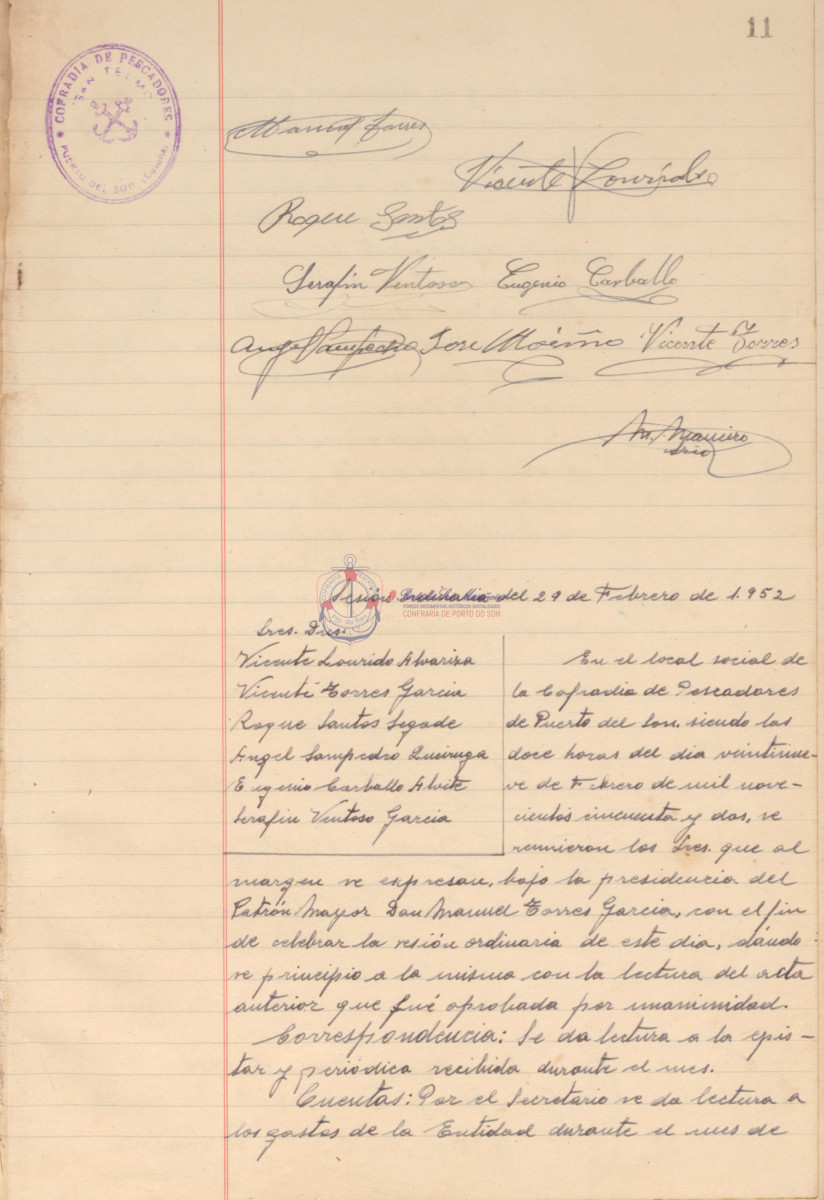 11
COFRADIA DE PESCADORES
SAN TELMO
PUERTO DEL SON (Coruña)
Manuel Torres
Vicente Lourido
Roque Santos
Serafin Ventoso Eugenio Carballo
Angel Sampedro Jose Vicente Torres
M. Maneiro
srio
Sesión Ordinaria del 29 de Febrero de 1.952
FONDOS DOCUMENTAIS HISTÓRICOS DIXITALIZADOS
CONFRARIA DE PORTO DO SON
Sres. Dns.
Vicente Lourido Alvariza
Vicente Torres Garcia
Roque Santos Segade
Angel Sampedro Queiruga
Eugenio Carballo Alvite
Serafin Ventoso Garcia
En el local social de
la Cofradia de Pescadores
de Puerto del Son, siendo las
doce horas del dia veintinue-
ve de Febrero de mil nove-
cientos cincuenta y dos, se
reunieron los Sres. que al
margen se expresan, bajo la presidencia del
Patrón Mayor Don Manuel Torres Garcia, con el fin
de celebrar la sesión ordinaria de este dia, dándo-
se principio a la misma con la lectura del acta
anterior que fué aprobada por unanimidad.
Correspondencia: Se da lectura a la epis-
tar y periódica recibida durante el mes.
Cuentas: Por el Secretario se da lectura a
los gastos de la Entidad durante el mes de